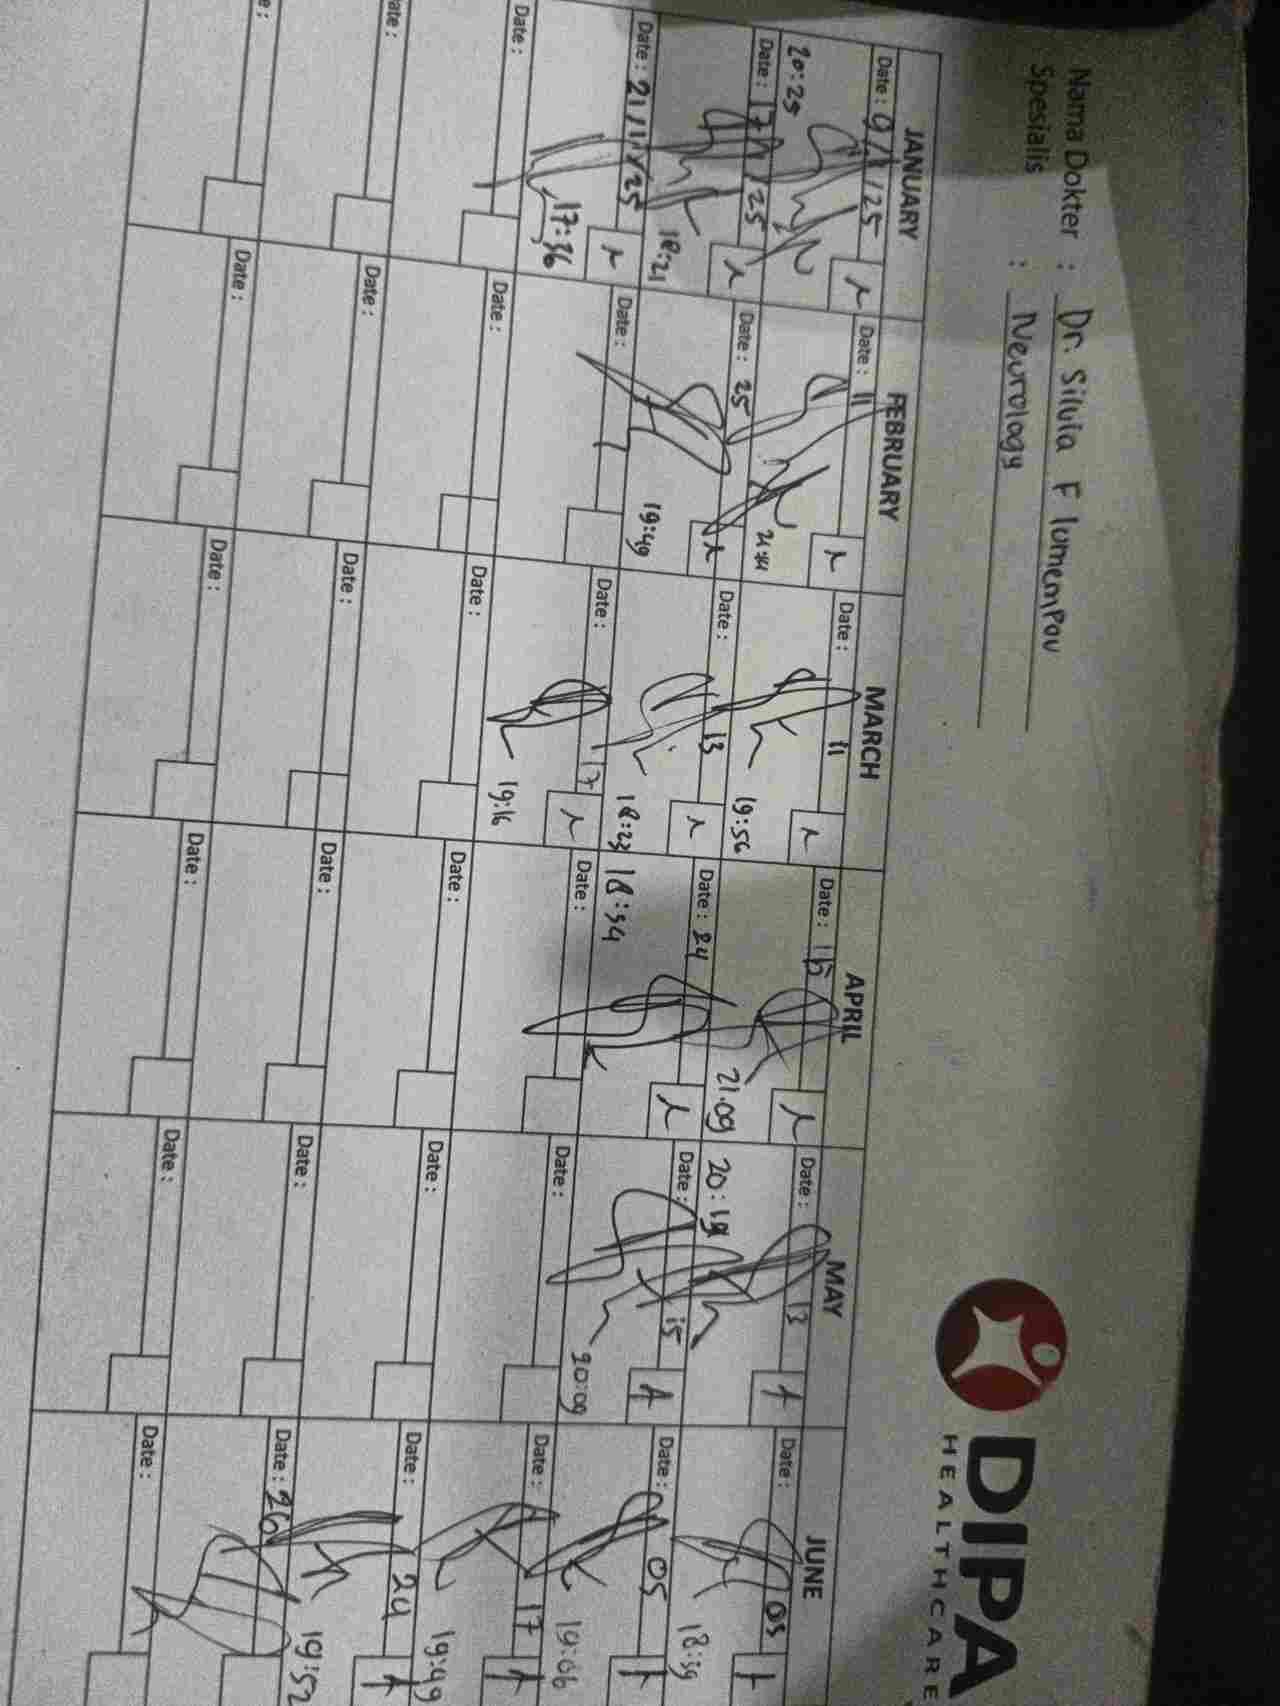 DIPA
HEALTHCARE
Nama Dokter : Dr. Silvia F lumempou
Spesialis : Neurology
JANUARY FEBRUARY MARCH APRIL MAY JUNE
Date : 9/1/25 Date : 11 Date : 11 Date : 15 Date : 13 Date : 03
20:29 19:56 21.09 20:19 18:39
Date : 17/1/25 Date : 25 Date : 13 Date : 24 Date : 15 Date : 05
18:21 19:49 18:23 18:54 20:09 19:06
Date : 21/1/25 Date : Date : 17 Date : Date : Date : 17
17:36 19:16 19:49
Date : Date : Date : Date : Date : Date : 24
19:52
Date : Date : Date : Date : Date : Date : 26
Date : Date : Date : Date : Date :